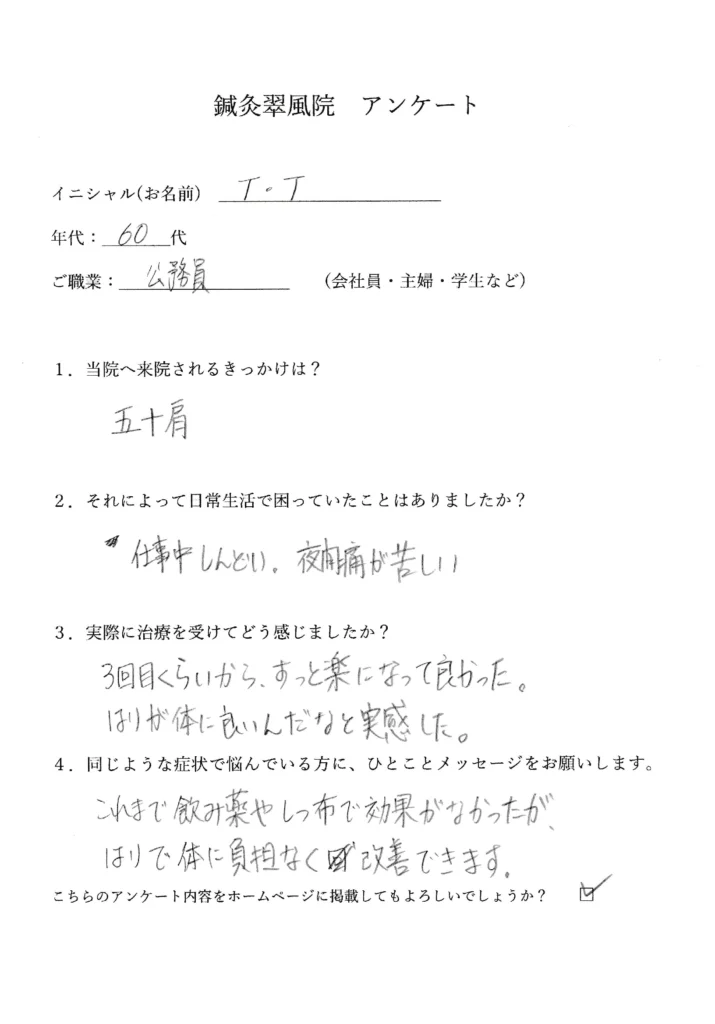 鍼灸翠風院　アンケート
イニシャル(お名前)　T・T
年代：60代
ご職業：公務員　(会社員・主婦・学生など)
１．当院へ来院されるきっかけは？
五十肩
２．それによって日常生活で困っていたことはありましたか？
仕事中しんどい。夜間痛が苦しい
３．実際に治療を受けてどう感じましたか？
3回目くらいから、すっと楽になって良かった。
はりが体に良いんだなと実感した。
４．同じような症状で悩んでいる方に、ひとことメッセージをお願いします。
これまで飲み薬やしっ布で効果がなかったが、
はりで体に負担なく改善できます。
こちらのアンケート内容をホームページに掲載してもよろしいでしょうか？　☑